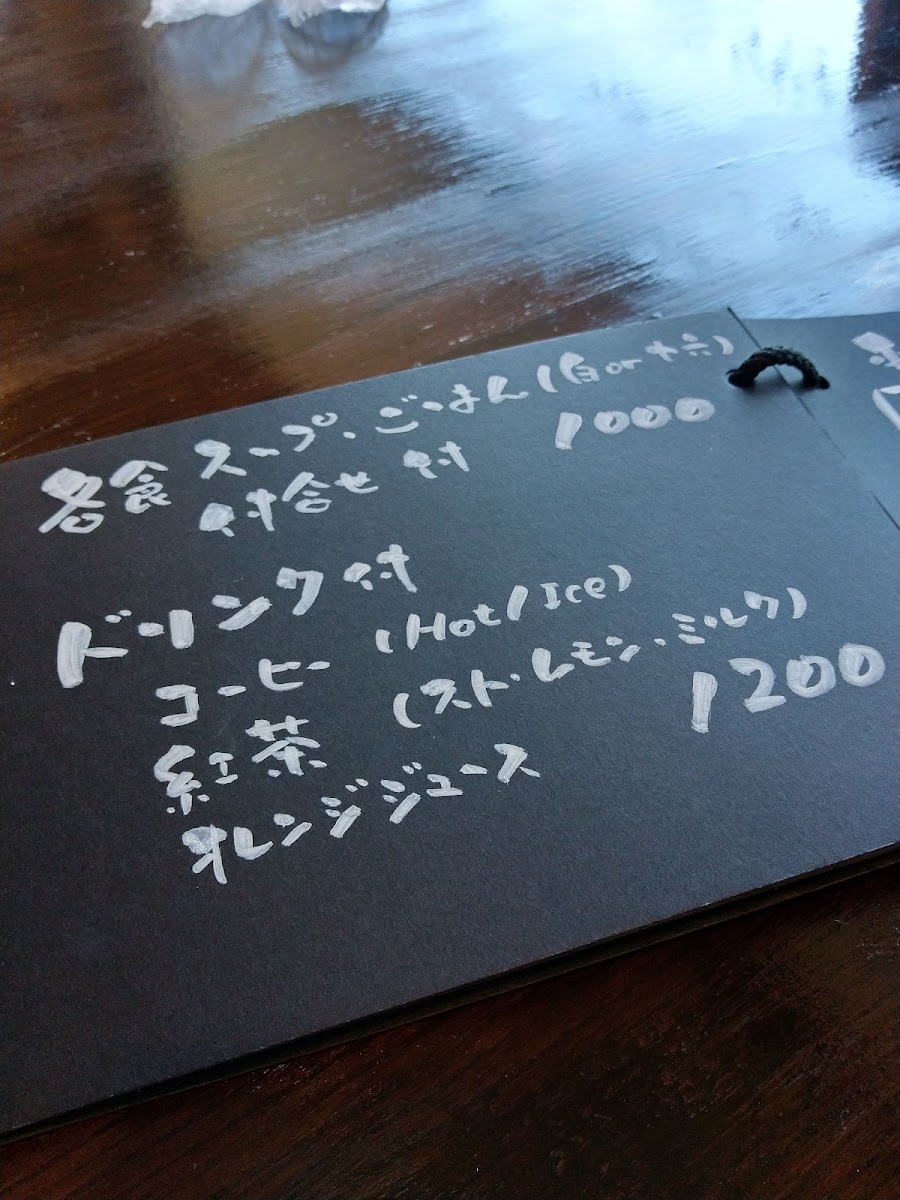 各食 スープ・ごはん(白or十六)
付合せ 付 1000
ドリンク付
コーヒー (Hot/Ice)
紅茶 (スト・レモン・ミルク)
オレンジジュース 1200